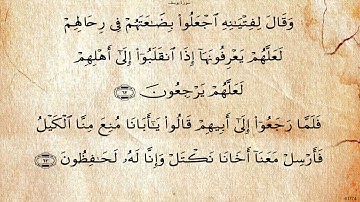 وَقَالَ لِفِتْيَـٰنِهِ ٱجْعَلُوا۟ بِضَـٰعَتَهُمْ فِى رِحَالِهِمْ
لَعَلَّهُمْ يَعْرِفُونَهَآ إِذَا ٱنقَلَبُوٓا۟ إِلَىٰٓ أَهْلِهِمْ
لَعَلَّهُمْ يَرْجِعُونَ ٦٢
فَلَمَّا رَجَعُوٓا۟ إِلَىٰٓ أَبِيهِمْ قَالُوا۟ يَـٰٓأَبَانَا مُنِعَ مِنَّا ٱلْكَيْلُ
فَأَرْسِلْ مَعَنَآ أَخَانَا نَكْتَلْ وَإِنَّا لَهُۥ لَحَـٰفِظُونَ ٦٣